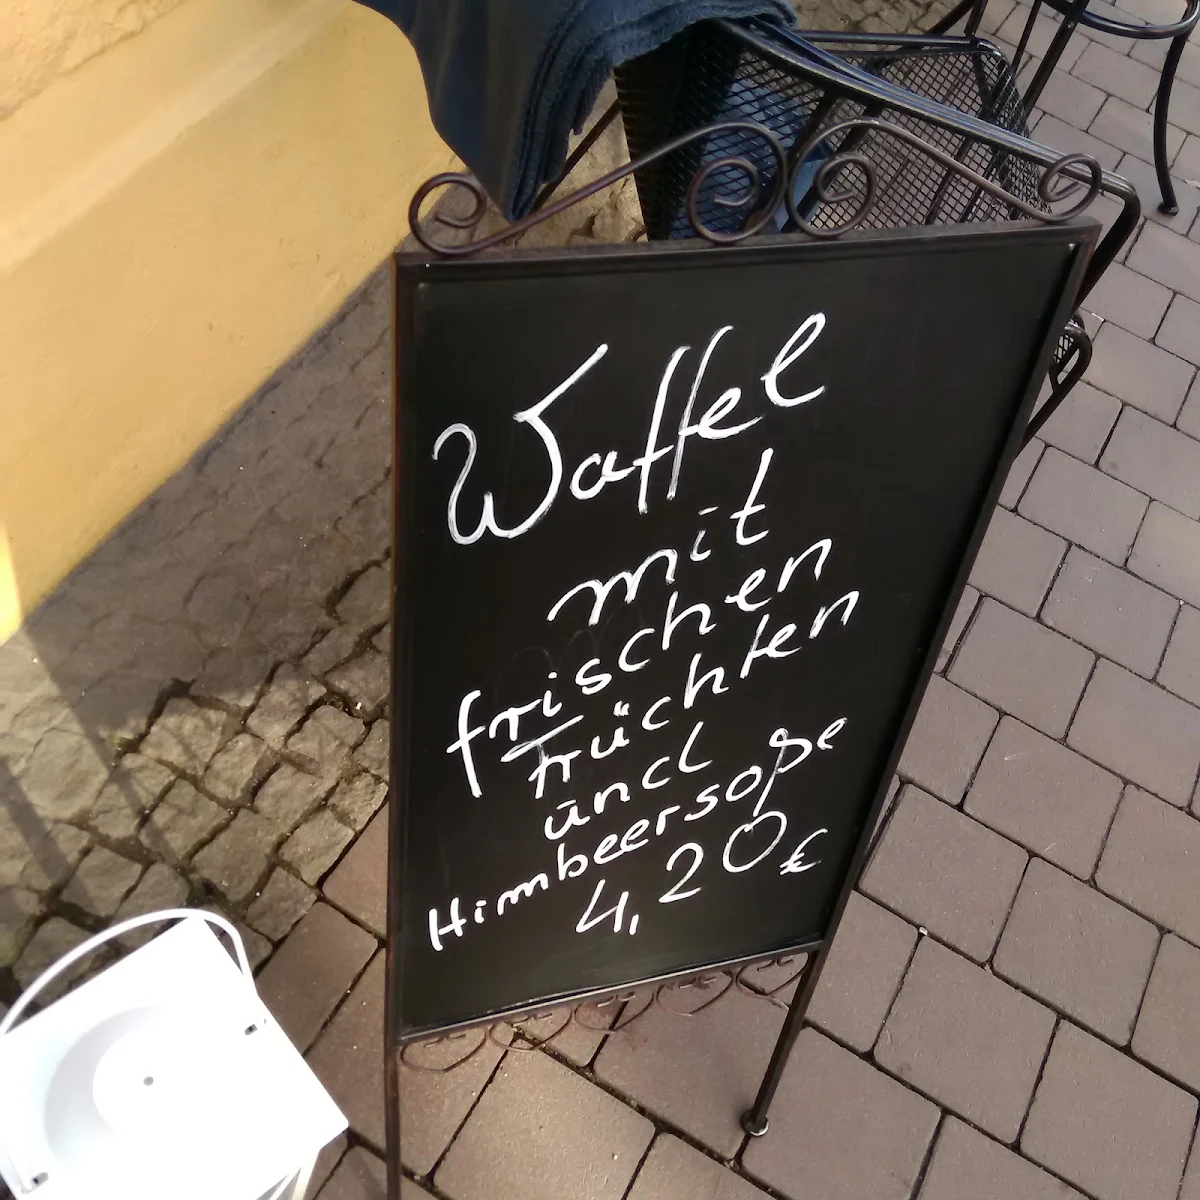 Waffel
mit
frischen
Früchten
und
Himbeersoße
4,20€